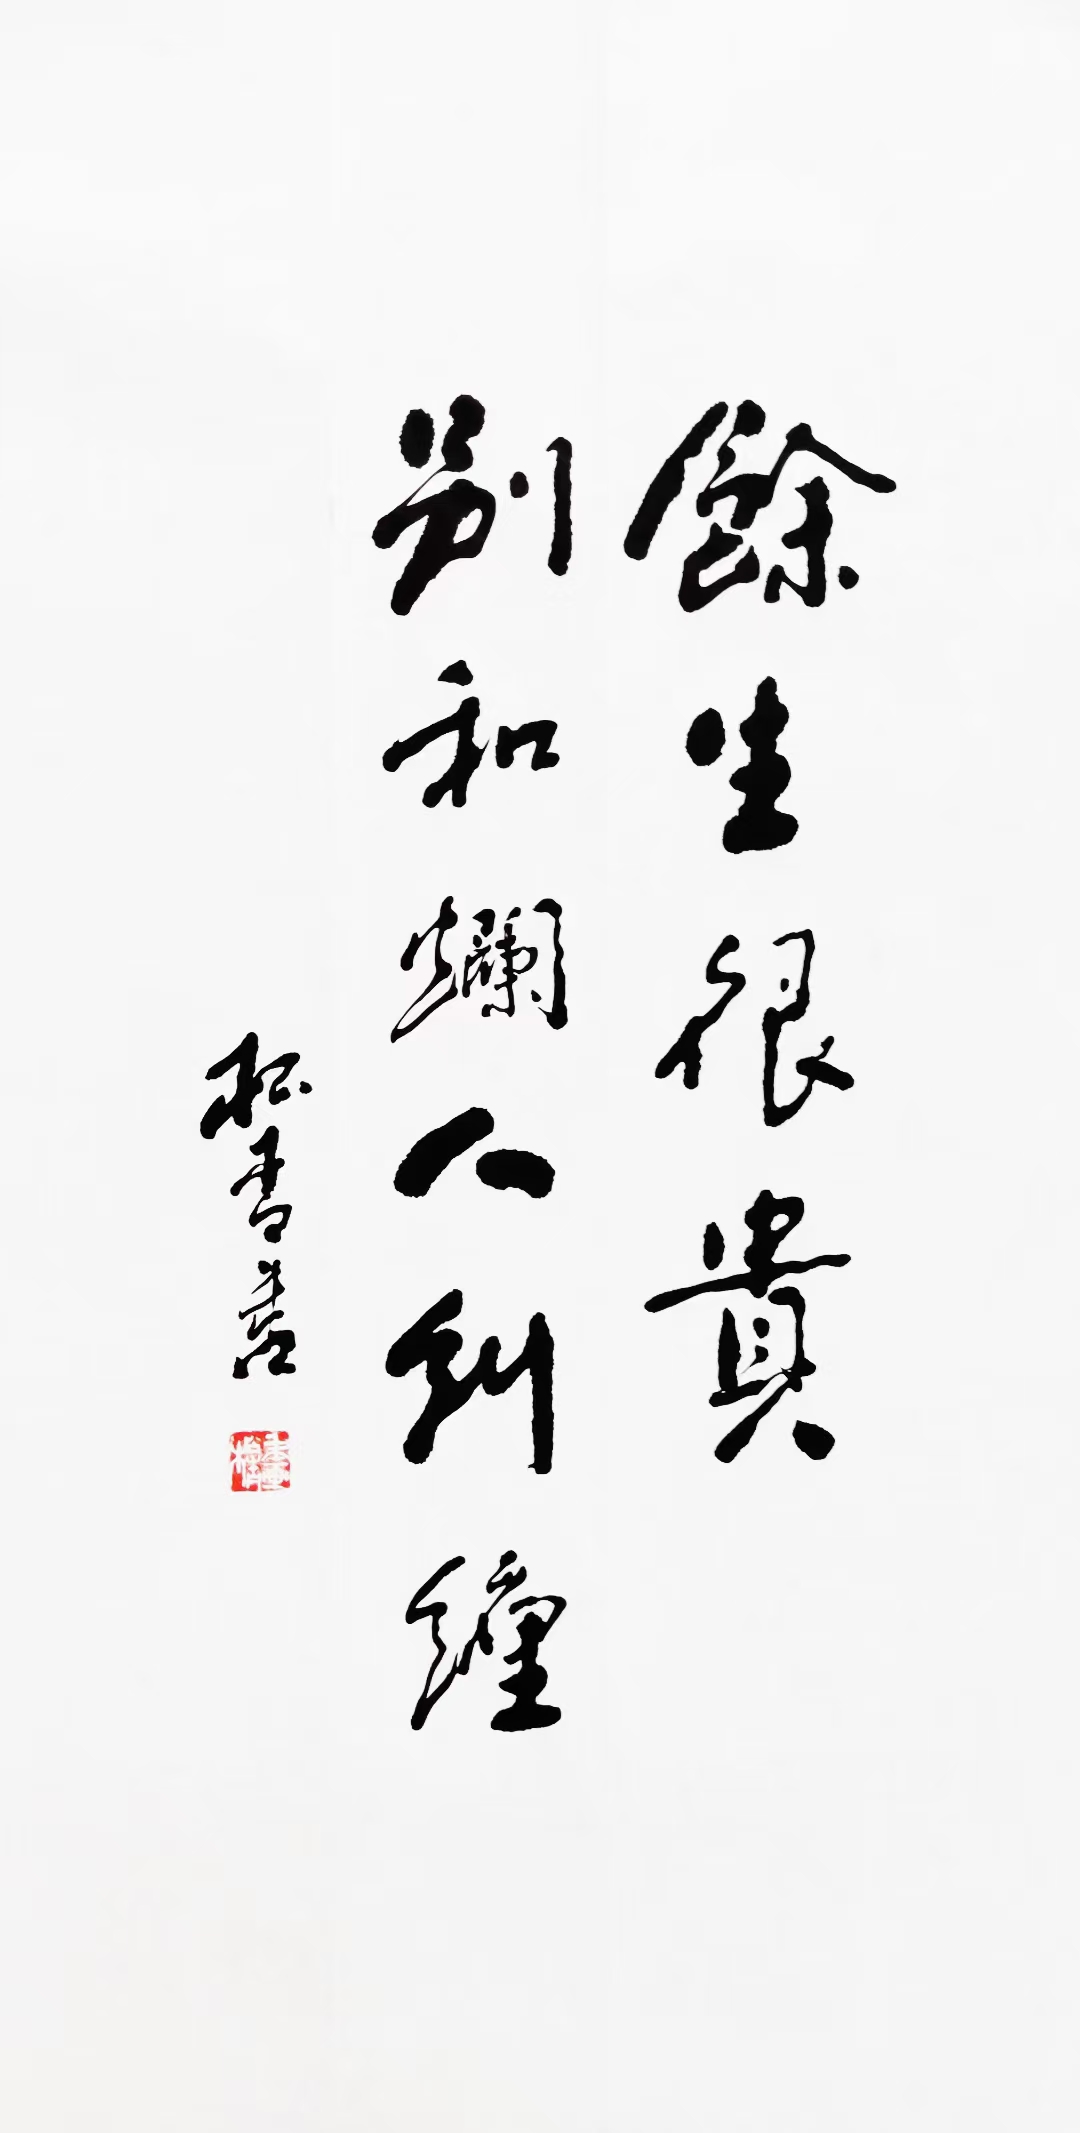 餘生很貴
別和爛人糾纏
松雪書